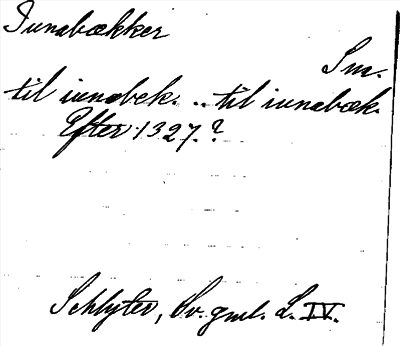 Iunabækker
Sm.
til iunabek. .. til iunabæk.
Efter 1327.?
Schlyter, Sv. gml. L. IV.